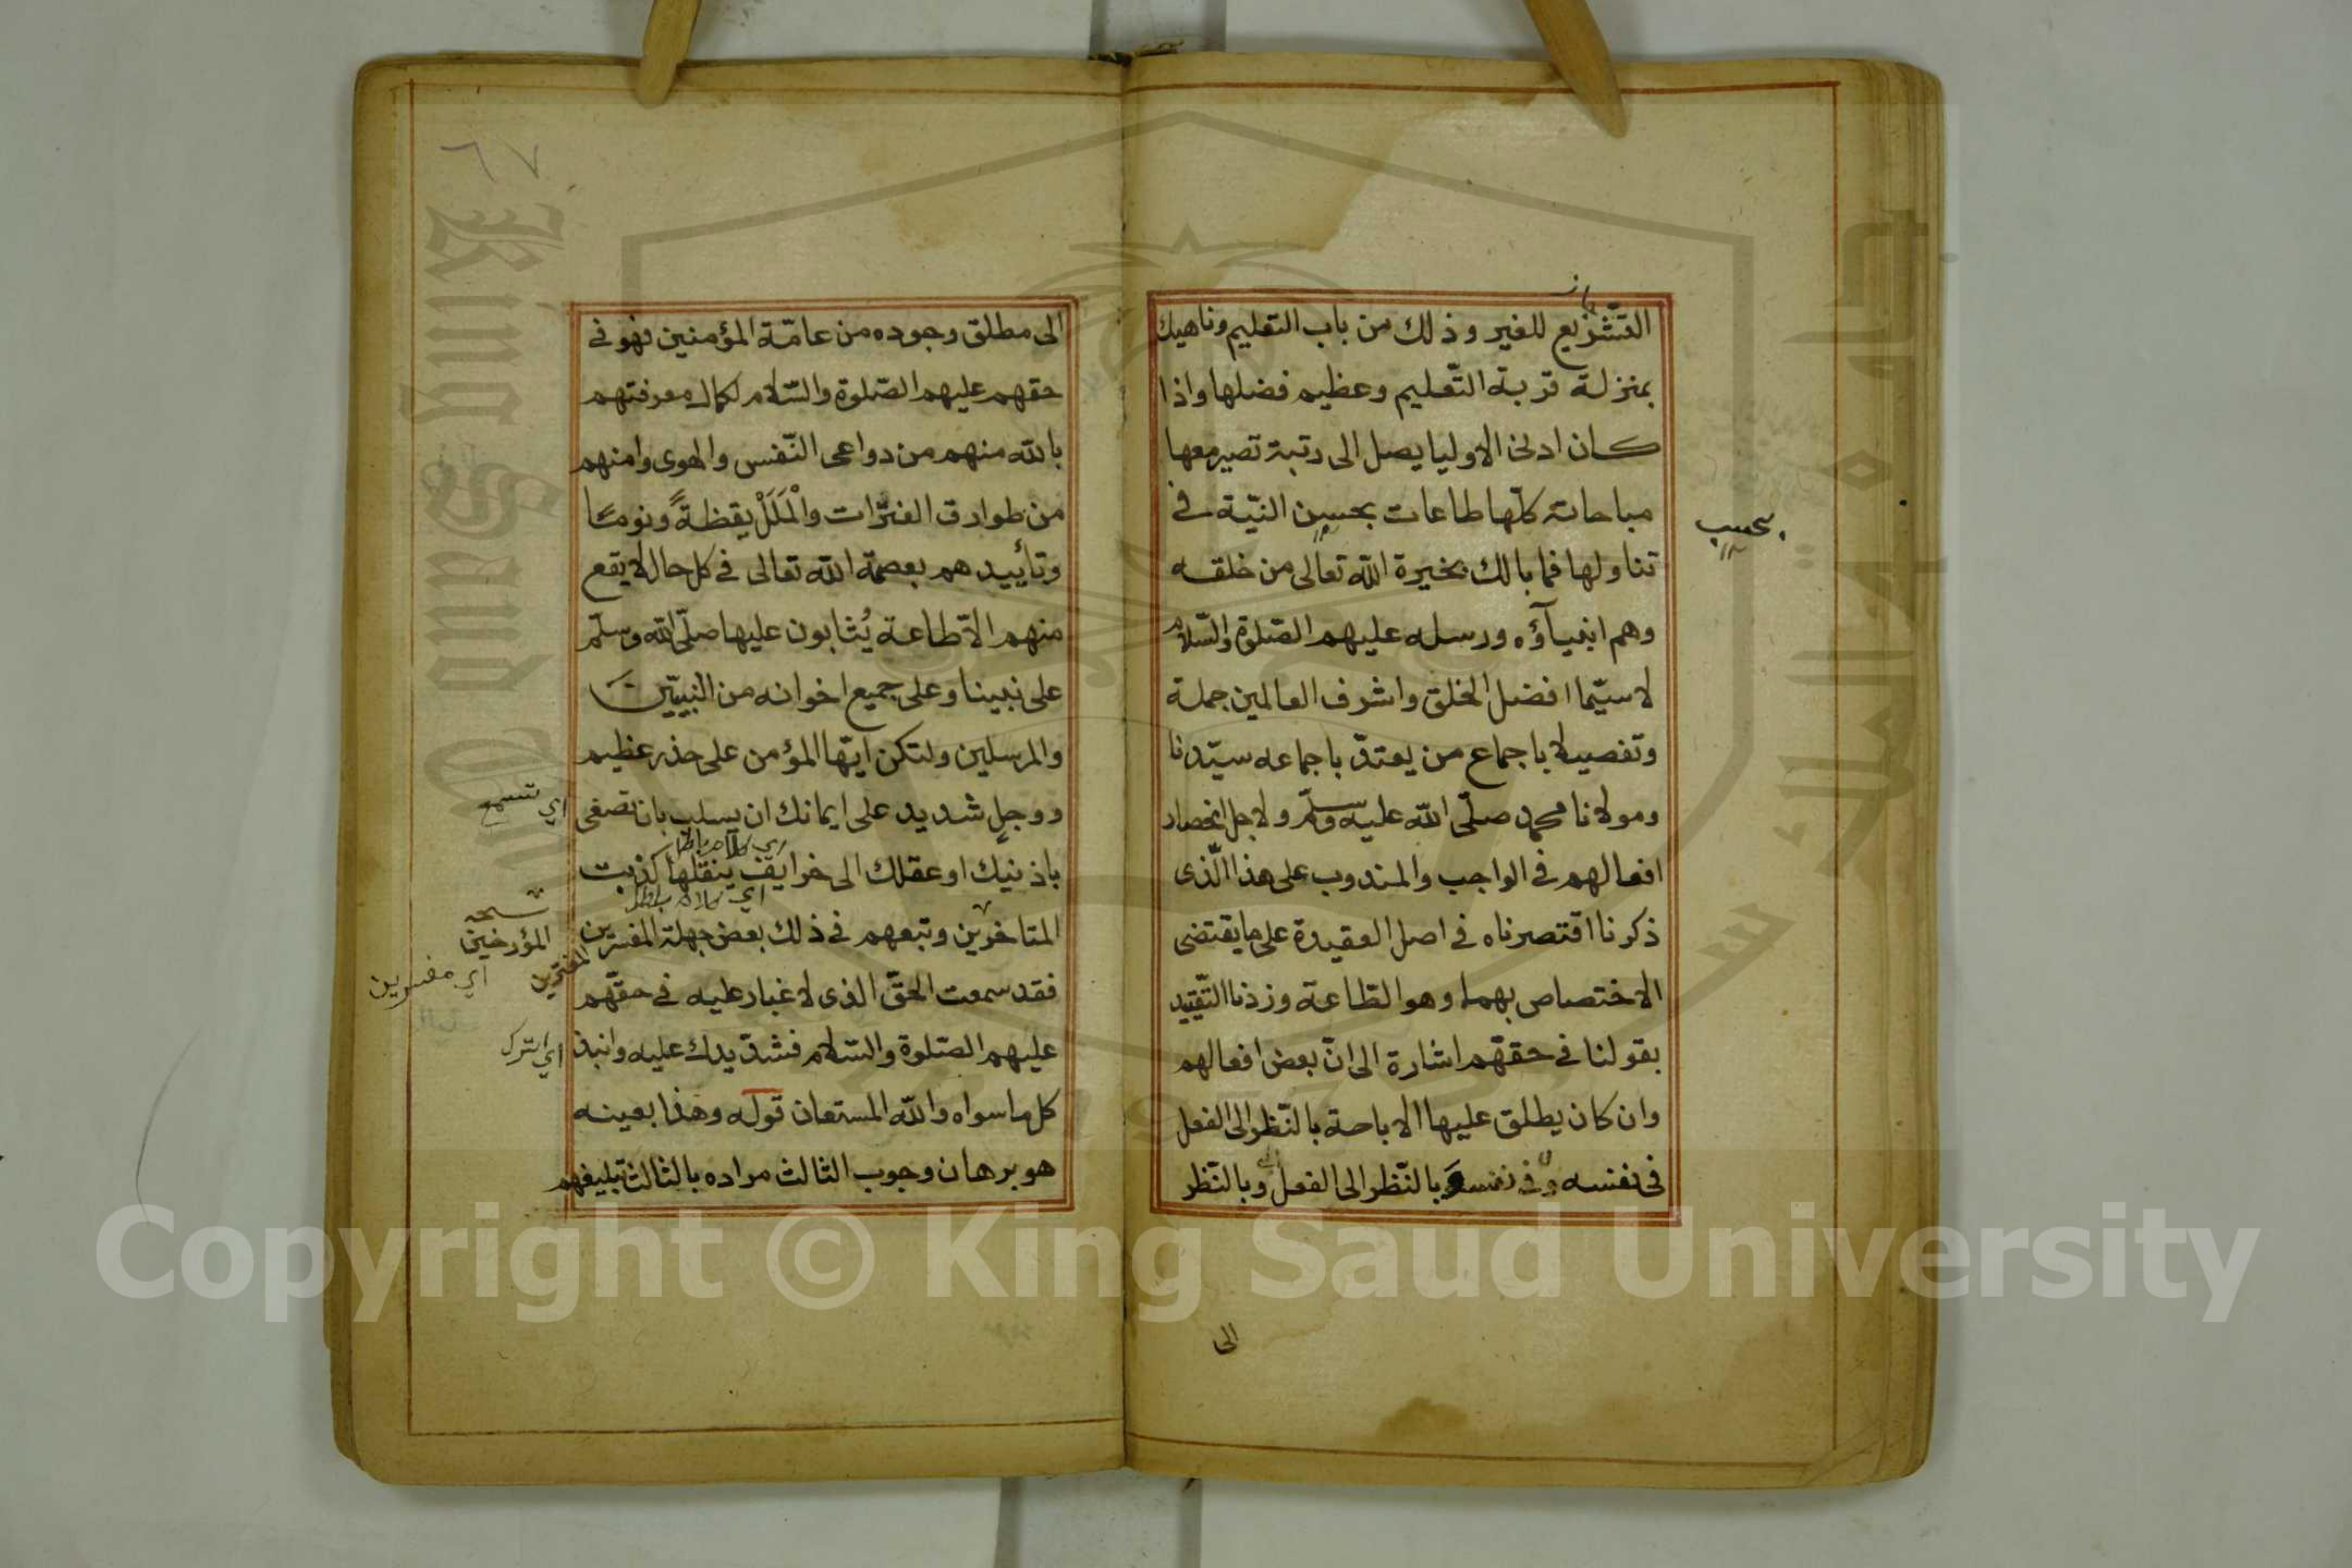 التشريع للغير وذلك من باب التعليم وناهيك
بمنزلة قربة التّعليم وعظيم فضلها واذا
كان ادنى الاوليا يصل الى رتبة تصير معها
مباحاته كلّها طاعات بحسن النيّة فى
بحسب
تناولها فما بالك بخيرة اللّه تعالى من خلقه
وهم انبيآؤه ورسله عليهم الصّلوة والسّلام
لا سيّما افضل الخلق واشرف العالمين جملة
وتفصيلا باجماع من يعتدّ باجماعه سيّدنا
ومولانا محمد صلّى اللّه عليه وسلّم ولاجل انحصار
افعالهم فى الواجب والمندوب على هذا الّذى
ذكرنا اقتصرناه فى اصل العقيدة على ما يقتضى
الاختصاص بهما وهو الطّاعة وزدنا التّقييد
بقولنا فى حقهّم اشارة الى انّ بعض افعالهم
وان كان يطلق عليها الاباحة بالنّظر الى الفعل
فى نفسه وفى نفسه بالنّظر الى الفعل وبالنّظر
الى
٦٧
الى مطلق وجوده من عامّة المؤمنين فهو فى
حقهم عليهم الصّلوة والسّلام لكمال معرفتهم
باللّه منهم من دواعى النّفس والهوى وامنهم
من طوارق الفترات والْمَلَلْ يقظةً ونومًا
وتأييدهم بعصمة اللّه تعالى فى كل حال لا يقع
منهم الاّ طاعة يُثابون عليها صلّى اللّه وسلّم
على نبينا وعلى جميع اخوانه من النبيّين
والمرسلين ولتكن ايّها المؤمن على حذر عظيم
ووجل شديد على ايمانك ان يسلب بان تصغى
اي تسمع
باذنيك او عقلك الى خرايف ينقلها كذبت
اي كلام باطل
المتاخرين وتبعهم فى ذلك بعض جهلة المفسّرين
نسخه
المؤرخين
المفترين
اي مفسرين
فقد سمعت الحقّ الذى لا غبار عليه فى حقهّم
عليهم الصّلوة والسّلام فشدّ يدك عليه وانبذ
اي اترك
كل ما سواه واللّه المستعان قوله وهذا بعينه
هو برهان وجوب الثالث مراده بالثالث تبليغهم
King Saud University
Copyright © King Saud University